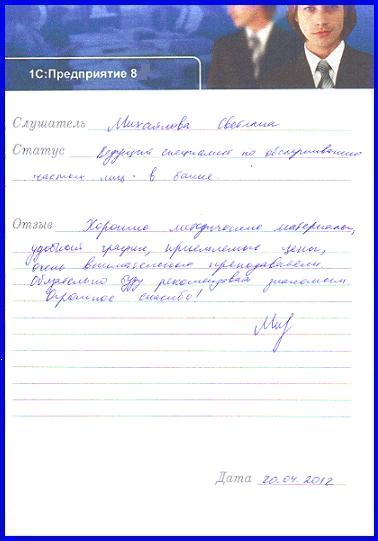 1С:Предприятие 8
Слушатель Михайлова Светлана
Статус Ведущий специалист по обслуживанию
частных лиц в банке.
Отзыв Хорошие методические материалы,
удобный график, приемлемые цены,
очень внимательные преподаватели.
Обязательно буду рекомендовать знакомым.
Огромное спасибо!
Дата 20.04.2012